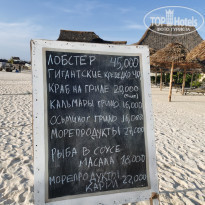 TOP HOTELS
ЛОБСТЕР 45,000
ГИГАНТСКИЕ КРЕВЕДКО 40
КРАБ НА ГРИЛЕ 20,000
КАЛЬМАРЫ ГРИЛЬ 16,000
ОСЬМИНОГ ГРИЛЬ 16,000
МОРЕПРОДУКТЫ
РЫБА В СОУСЕ
МАСАЛА 18,000
МОРЕПРОДУКТЫ
КАРРИ 22,000